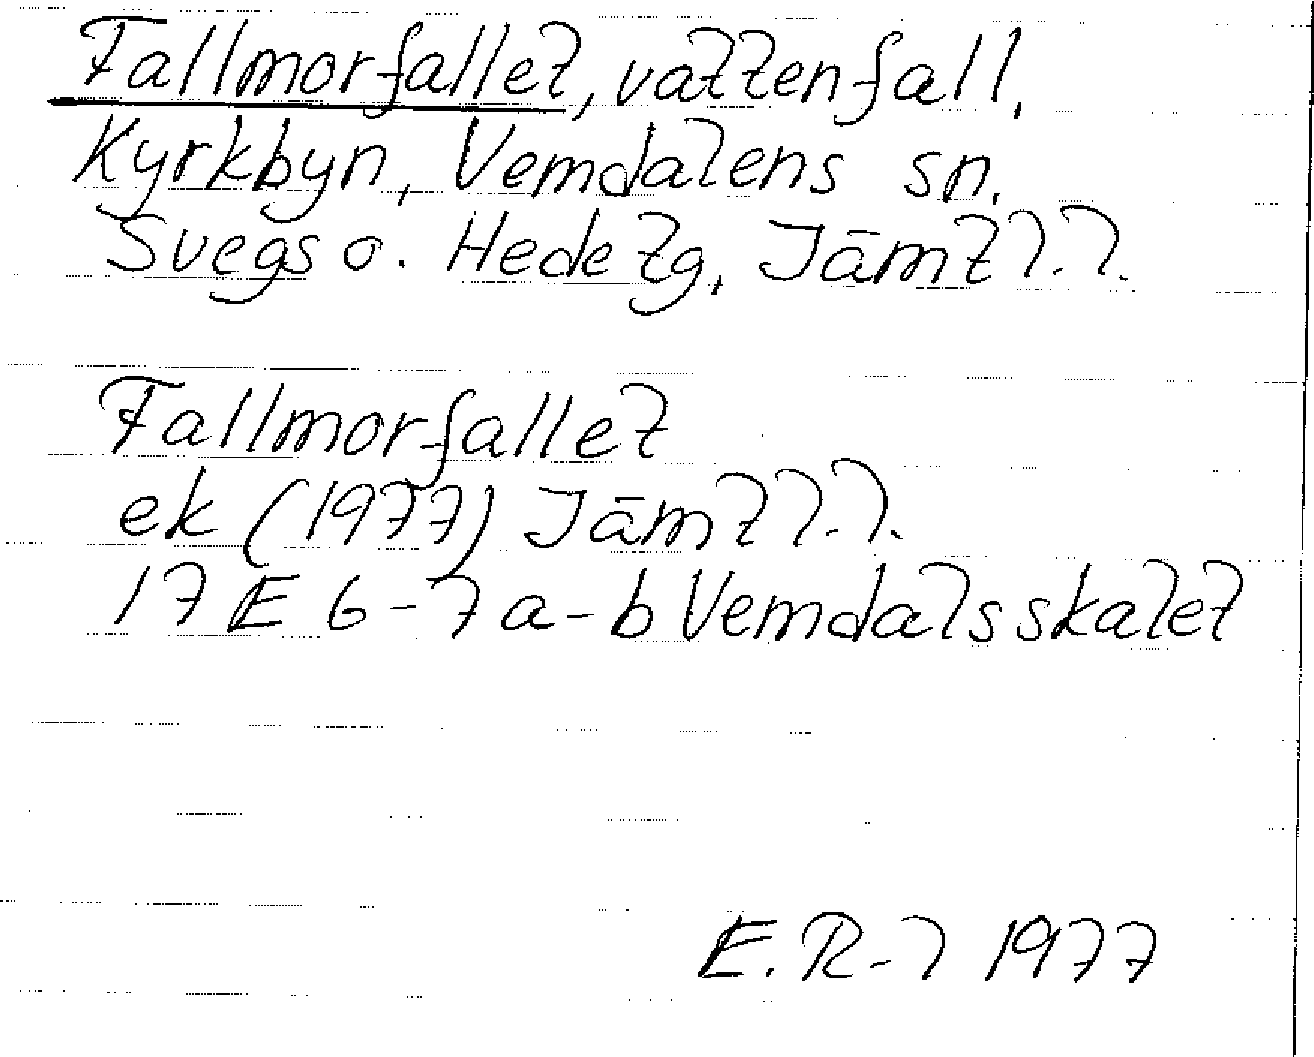 Fallmorfallet, vattenfall,
Kyrkbyn, Vemdalens sn,
Svegs o. Hede tg, Jämtl.l.
Fallmorfallet
ek (1977) Jämtl.l.
17 E 6-7 a-b Vemdalsskalet
E.R-l 1977